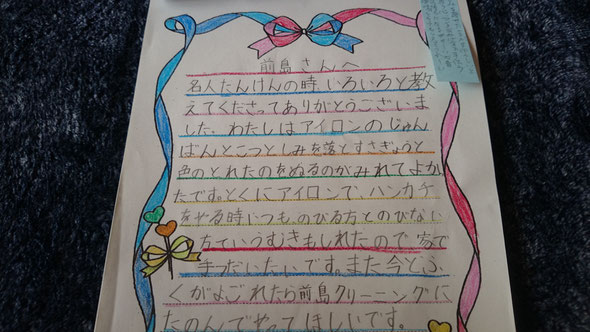 前島さんへ
名人たんけんの時、いろいろと教
えてくださってありがとうございま
した。わたしはアイロンのじゅん
ばんとこつとしみを落とすさぎょうと
色のとれたのをぬるのがみれてよか
たです。とくにアイロンで、ハンカチ
をやる時いつものびる方とのびない
方ていうむきもしれたので家で
手つだいたいです。また今ど、ふ
くがよごれたら前島クリーニングに
たのんでやってほしいです。